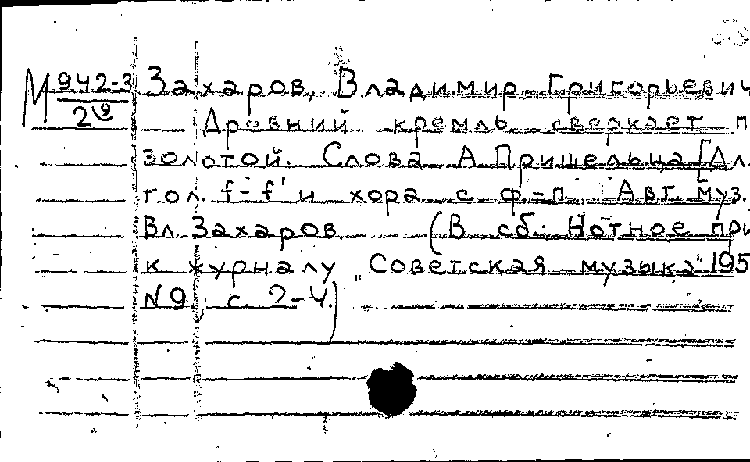 М 942-3 Захаров, Владимир Григорьевич
2 Древний кремль сверкает п
золотой. Слова А. Пришельца [Дл.
гол. f-f' и хора с ф-п. Авт. муз.
Вл. Захаров (В сб.: Нотное при
к журналу „Советская музыка" 195
N 9, с. 2-4.)